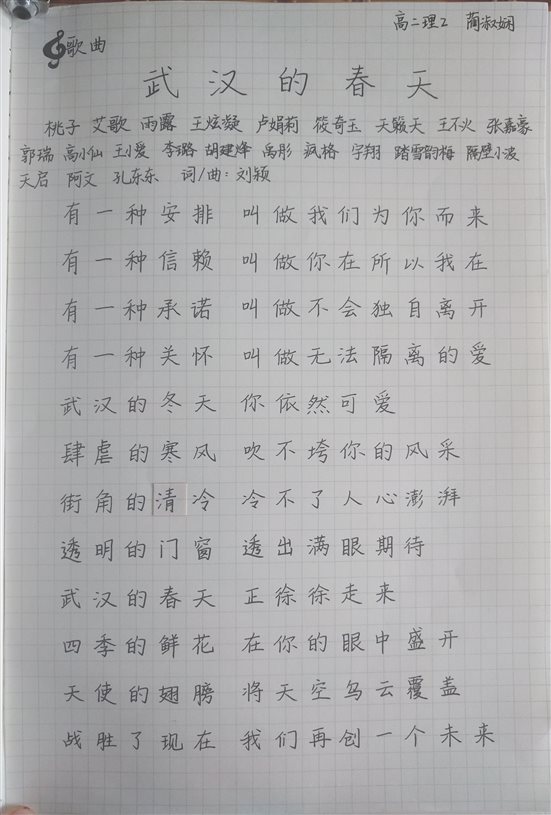 高二理2 蔺淑娴
歌曲
武汉的春天
桃子 艾歌 雨露 王炫凝 卢娟莉 筱奇玉 天籁天 王不火 张嘉豪
郭瑞 高小仙 王小爱 李璐 胡建烽 禹彤 疯格 宇翔 踏雪韵梅 隔壁小波
天启 阿文 孔东东 词/曲:刘颖
有一种安排 叫做我们为你而来
有一种信赖 叫做你在所以我在
有一种承诺 叫做不会独自离开
有一种关怀 叫做无法隔离的爱
武汉的冬天 你依然可爱
肆虐的寒风 吹不垮你的风采
街角的清冷 冷不了人心澎湃
透明的门窗 透出满眼期待
武汉的春天 正徐徐走来
四季的鲜花 在你的眼中盛开
天使的翅膀 将天空乌云覆盖
战胜了现在 我们再创一个未来